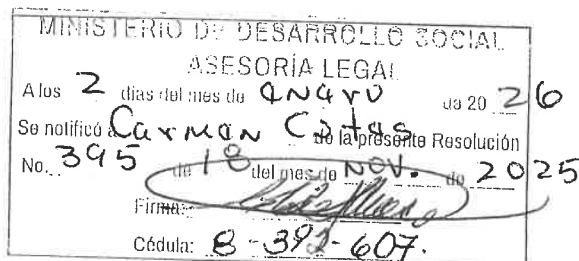 MINISTERIO DE DESARROLLO SOCIAL
ASESORÍA LEGAL
A los 2 días del mes de enero de 20 26
Se notificó a Carmen de la presente Resolución
No. 395 de 18 del mes de NOV. de 2025
Firma:
Cédula: 8-392-607.